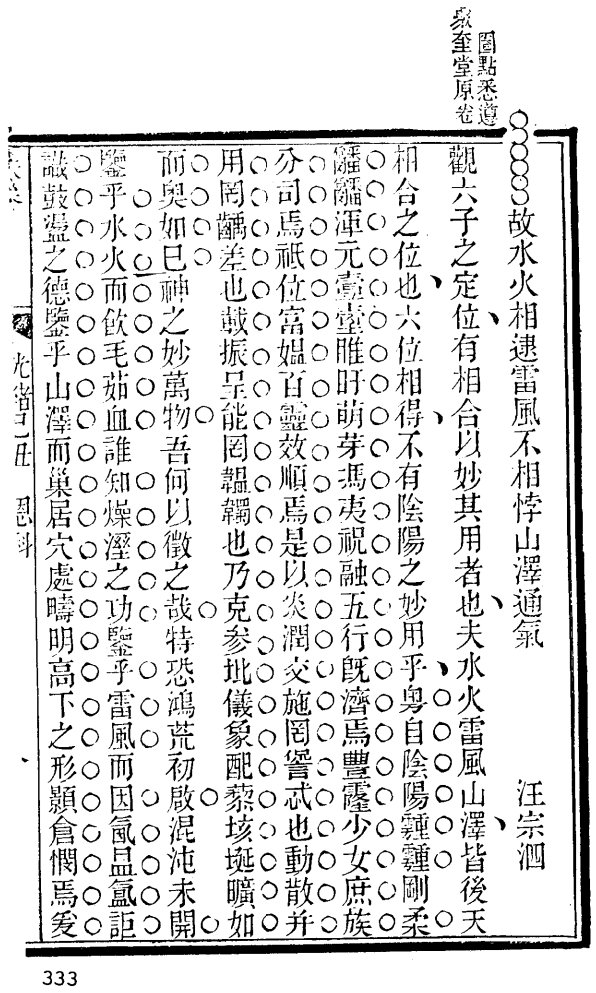 圈點悉遵
聚奎堂原卷
故水火相逮雷風不相悖山澤通氣 汪宗泗
觀六子之定位有相合以妙其用者也夫水火雷風山澤皆後天
相合之位也六位相得不有陰陽之妙用乎粵自陰陽霾霾剛柔
渾元壹壼睢盱萌芽馮夷祝融五行旣濟焉豐霳少女庶族
分司焉祇位富媼百靈效順焉是以炎潤交施罔詧忒也動散并
用罔齵差也鼓振呈能罔韞韣也乃克參坒儀象配藜垓埏曠如
而奧如巳神之妙萬物吾何以徵之哉特恐鴻荒初啟混沌未開
鑒乎水火而飮毛茹血誰知燥溼之功鑒乎雷風而因氤昷氳詎
識鼓盪之德鑒乎山澤而巢居穴處疇明高下之形顥倉憫焉爰
光緒己丑 恩科
333